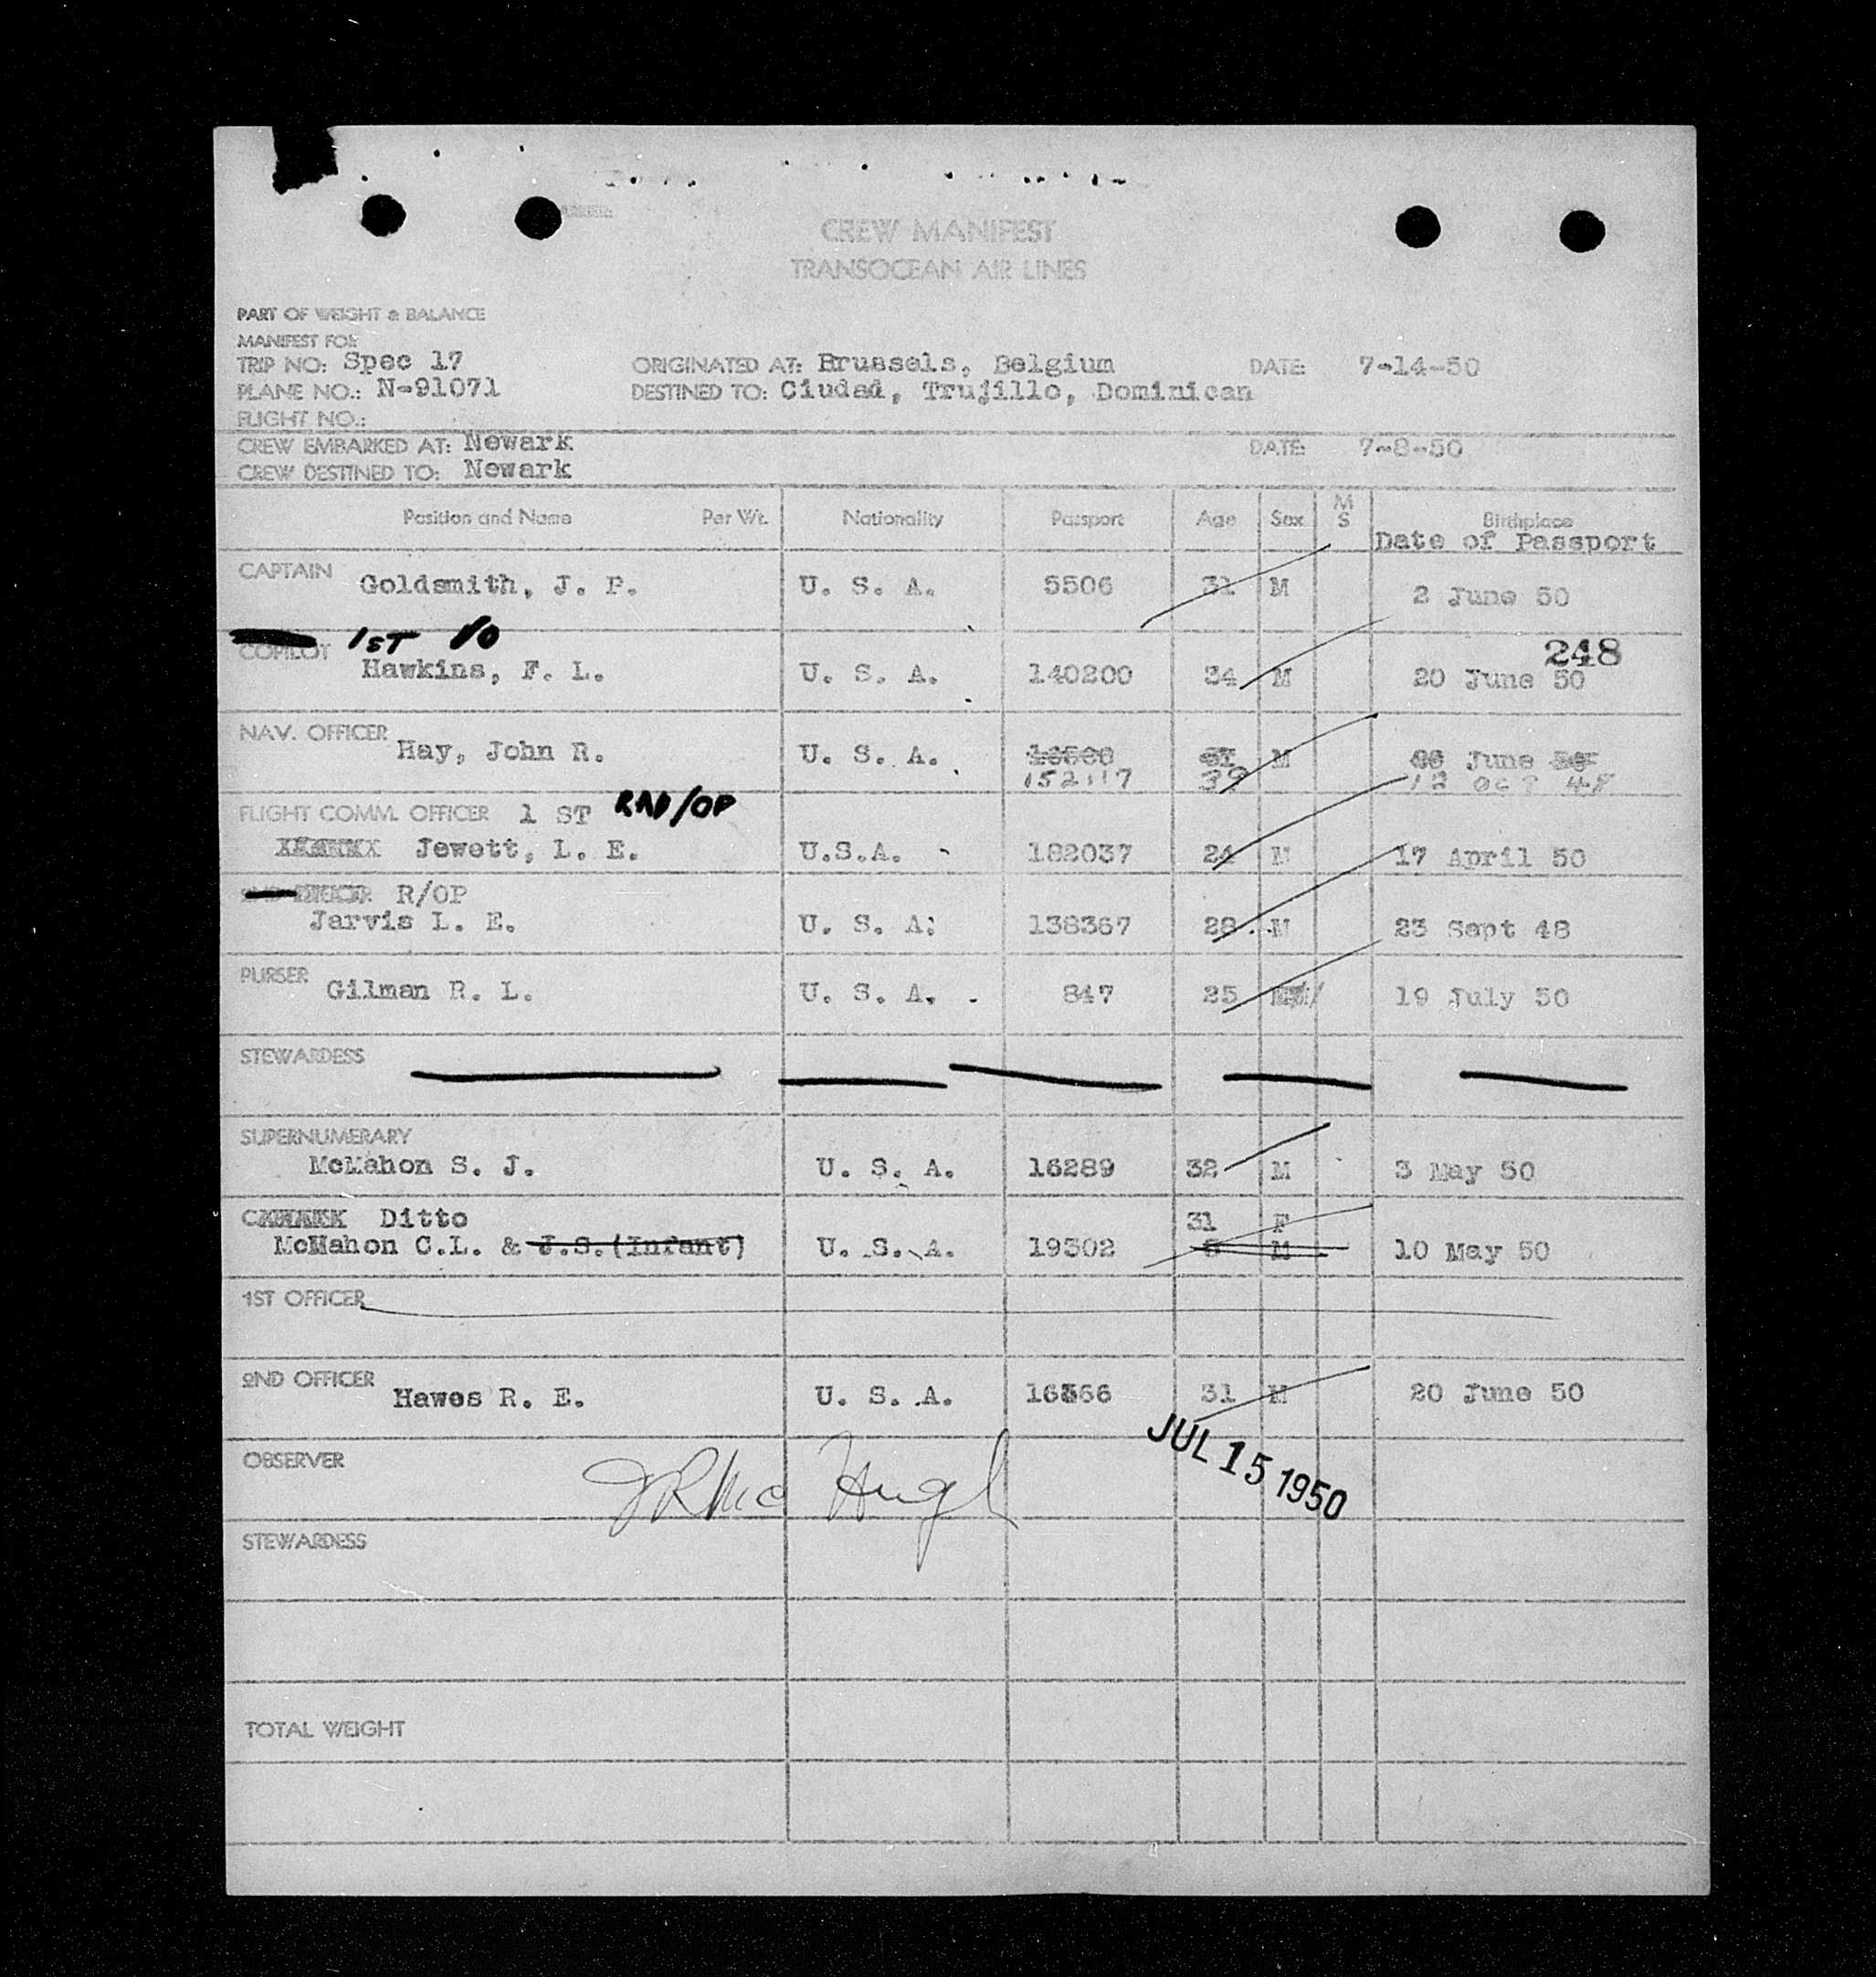 CREW MANIFEST
TRANSOCEAN AIR LINES
PART OF WEIGHT & BALANCE
MANIFEST FOR
TRIP NO: Spec 17 ORIGINATED AT: Brussels, Belgium DATE: 7-14-50
PLANE NO.: N-91071 DESTINED TO: Ciudad, Trujillo, Dominican
FLIGHT NO.:
CREW EMBARKED AT: Newark DATE: 7-8-50
CREW DESTINED TO: Newark
Position and Name Per Wt. Nationality Passport Age Sex M S Birthplace
Date of Passport
CAPTAIN Goldsmith, J. P. U. S. A. 5506 31 M 2 June 50
1ST
COPILOT 248
Hawkins, F. L. U. S. A. 140200 34 M 20 June 50
NAV. OFFICER Hay, John R. U. S. A. M June
152117 39
FLIGHT COMM. OFFICER 1 ST RAD/OP
Jewett, L. E. U.S.A. 182037 24 M 17 April 50
R/OP
Jarvis L. E. U. S. A. 138367 28 M 23 Sept 48
PURSER Gilman R. L. U. S. A. 847 25 19 July 50
STEWARDESS
SUPERNUMERARY
McMahon S. J. U. S. A. 16289 32 M 3 May 50
Ditto 31 F
McMahon C.L. & J.S.(Infant) U. S. A. 19302 M 10 May 50
1ST OFFICER
2ND OFFICER Hawes R. E. U. S. A. 16366 31 M 20 June 50
JUL 15 1950
OBSERVER
STEWARDESS
TOTAL WEIGHT